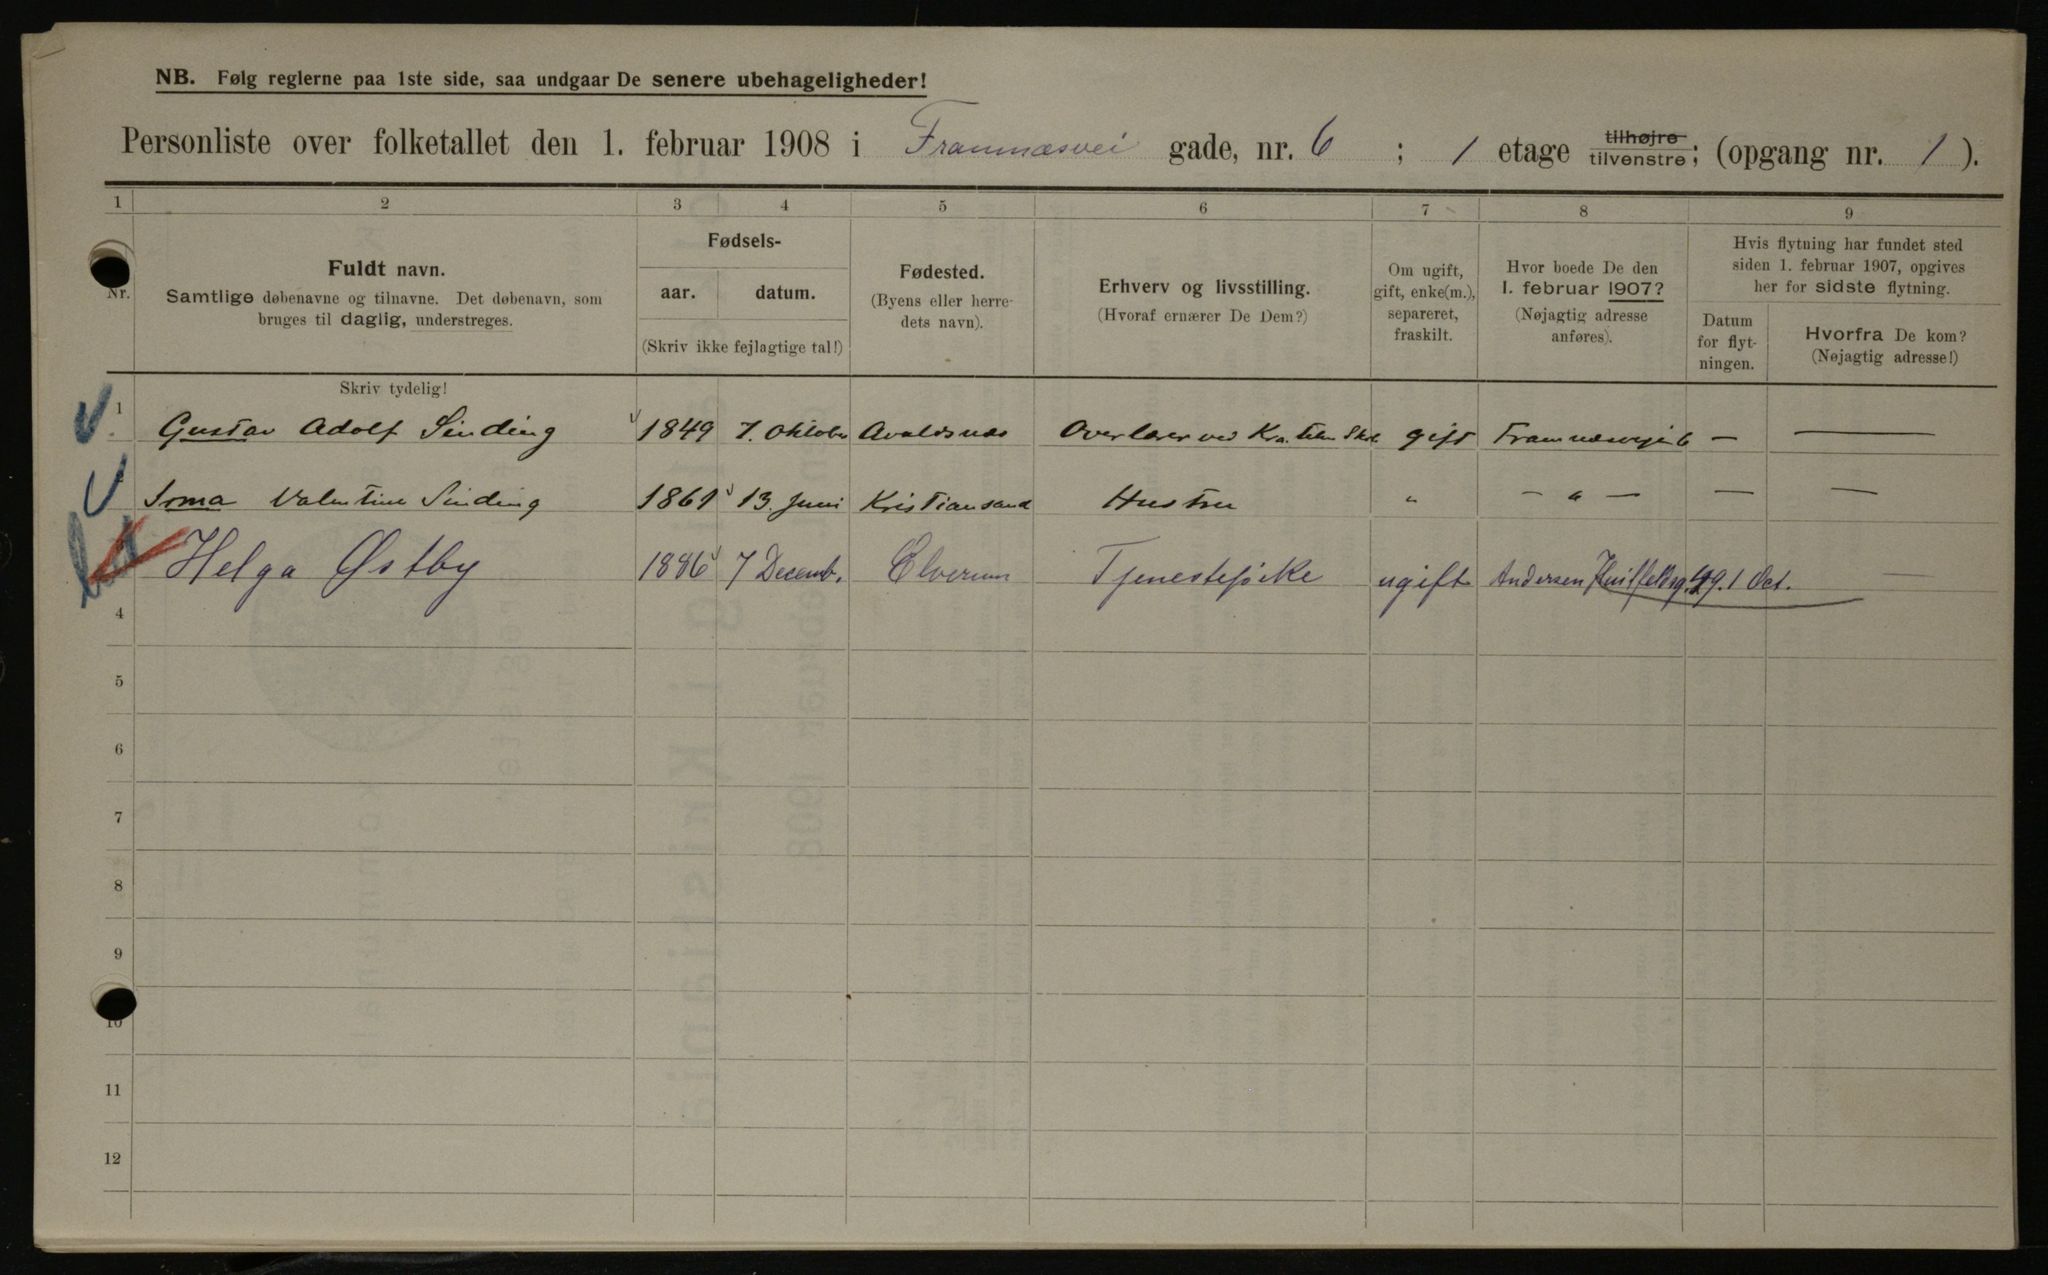 NB. Følg reglerne paa 1ste side, saa undgaar De senere ubehageligheder!
Personliste over folketallet den 1. februar 1908 i Framnæsvei gade, nr. 6 ; 1 etage tilhøjre tilvenstre; (opgang nr. 1 ).
1 2 3 4 5 6 7 8 9
Nr.
Fuldt navn.
Samtlige døbenavne og tilnavne. Det døbenavn, som
bruges til daglig, understreges.
Fødsels-
aar. datum.
(Skriv ikke fejlagtige tal!)
Fødested.
(Byens eller herre-
dets navn).
Erhverv og livsstilling.
(Hvoraf ernærer De Dem?)
Om ugift,
gift, enke(m.),
separeret,
fraskilt.
Hvor boede De den
1. februar 1907?
(Nøjagtig adresse
anføres).
Hvis flytning har fundet sted
siden 1. februar 1907, opgives
her for sidste flytning.
Datum
for flyt-
ningen.
Hvorfra De kom?
(Nøjagtig adresse!)
Skriv tydelig!
1 Gustav Adolf Sinding 1849 7. Oktober Avaldsnæs Overlærer ved Kra. gift Framnæsvej 6 — —
Valentine Sinding 1861 13. Juni Kristiansand Hustru " — " — — —
Helga Østby 1886 7 Decemb. Elverum Tjenestepike ugift Andersen Huitfeldsg. 49. 1 Oct. —
4
5
6
7
8
9
10
11
12